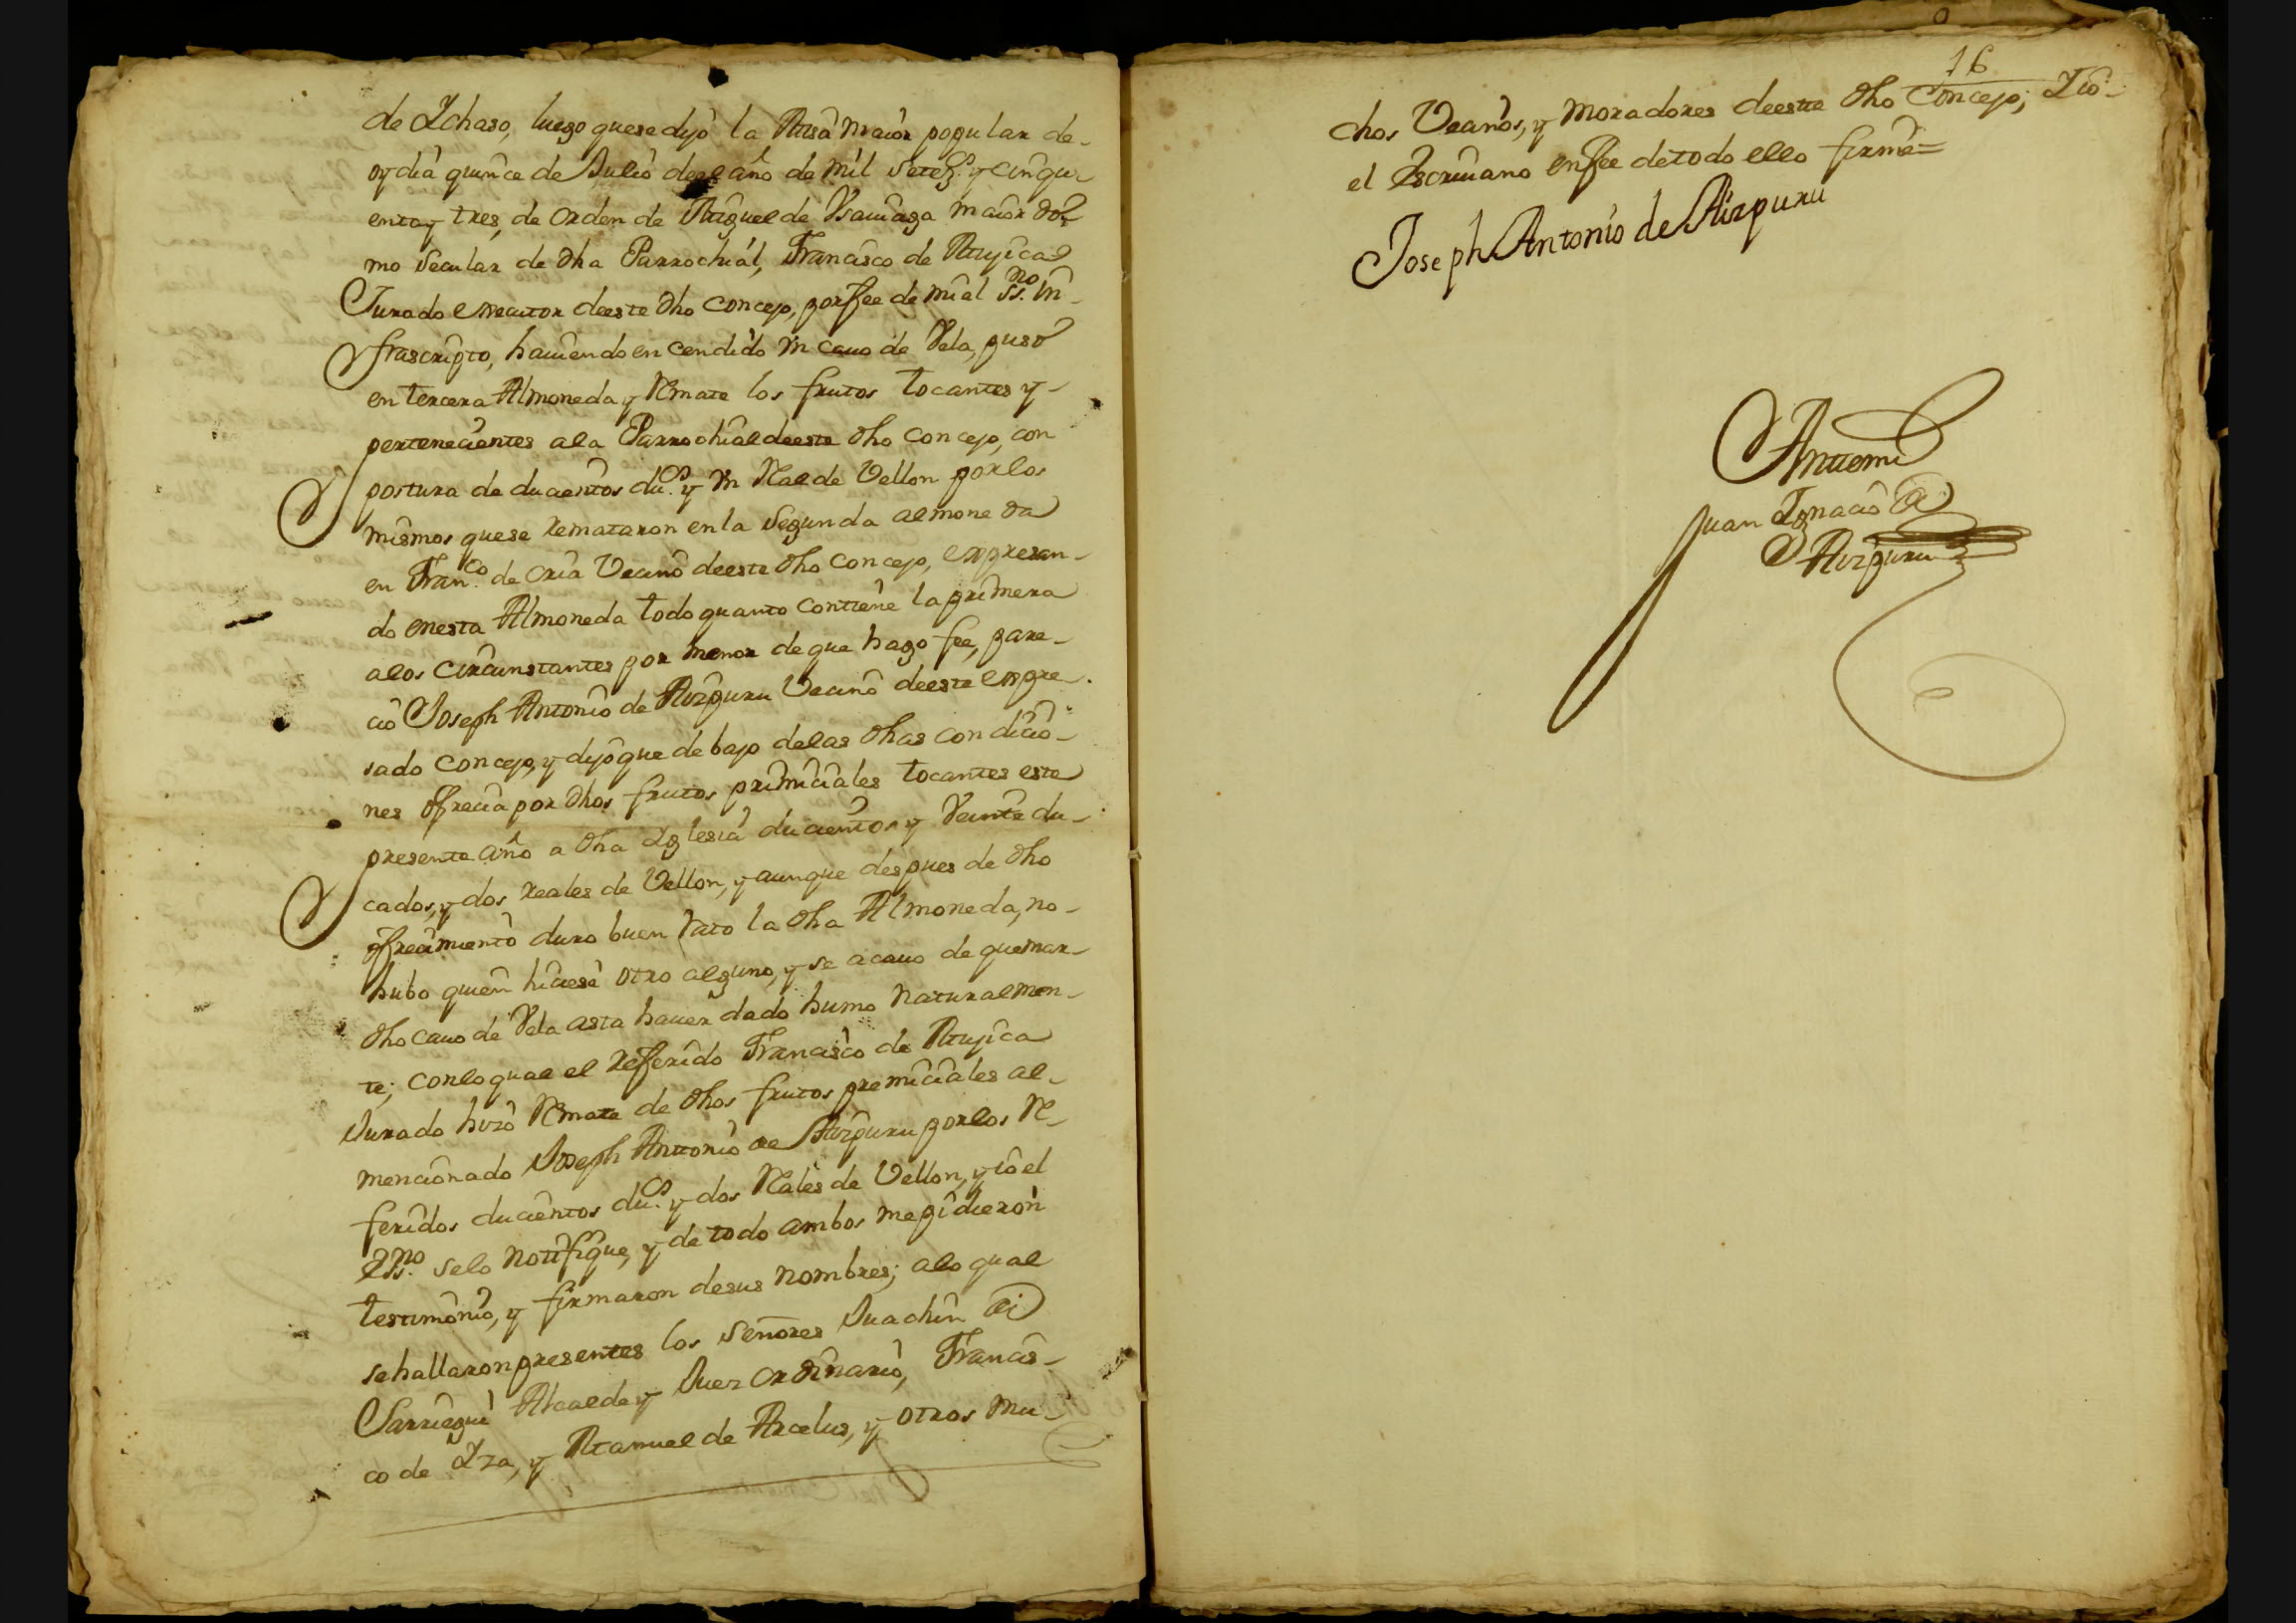 de Ychaso, luego que se dijo la Misa maior popular de-
oy dia quince de Julio deel año de mil setez.s y cinqu-
enta y tres, de orden de Miguel de Vsauiaga maiordo-
mo secular de dha Parrochial, Francisco de Mujica
Jurado executor deeste dho concejo, por fee de mi el ss.no in-
frascripto, hauiendo encendido vn cauo de Vela, puso
en tercera Almoneda y Remate los frutos tocantes y-
pertenecientes a la Parrochial deeste dho concejo, con
postura de ducientos du.s y vn Real de Vellon por los
mismos que se remataron en la segunda almoneda
en Fran.co de oria Vecino deeste dho concejo, expresan-
do enesta Almoneda todo quanto contiene la primera
a los circunstantes por menor de que hago fee, pare-
cio Joseph Antonio de Aizpuru Vecino deeste expre-
sado concejo, y dijo que debajo de las dhas condicio-
nes ofrecia por dhos frutos primiciales tocantes este
presente año a dha Yglesia ducientos y Veinte du-
cados, y dos reales de Vellon, y aunque despues de dho
ofrecimiento duro buen rato la dha Almoneda, no-
hubo quien hiciese otro alguno, y se acauo de quemar-
dho cauo de Vela asta hauer dado humo naturalmen-
te; con lo qual el referido Francisco de Mujica
Jurado hizo Remate de dhos frutos premiciales al-
mencionado Joseph Antonio de Aizpuru por los Re-
feridos ducientos du.s y dos Reales de Vellon, y io el
Ess.no se lo notifique, y de todo ambos me pidieron
testimonio, y firmaron de sus nombres; a lo qual
se hallaron presentes los señores Juachin de
Sarriegui Alcalde y Juez ordinario, Francis-
co de Yza, y Manuel de Arcelus, y otros mu-
16
chos Vecinos, y moradores deeste dho concejo; Y io-
el Escriuano en fee de todo ello firmé=
Joseph Antonio de Aizpuru
Antte mi
Juan Ygnacio de
Aizpuru